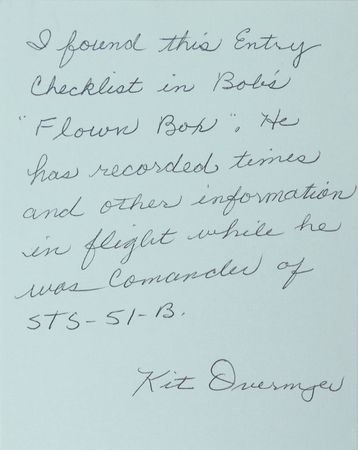 I found this Entry
Checklist in Bob's
"Flown Box". He
has recorded times
and other information
in flight while he
was Comander of
STS-51-B.
Kit Overmyer